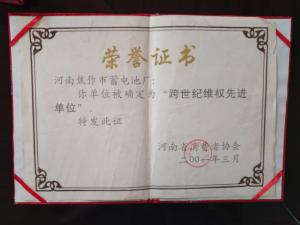 荣誉证书
河南焦作市蓄电池厂：
你单位被确定为“跨世纪维权先进
单位”．
特发此证
河南省消费者协会
二00一年三月